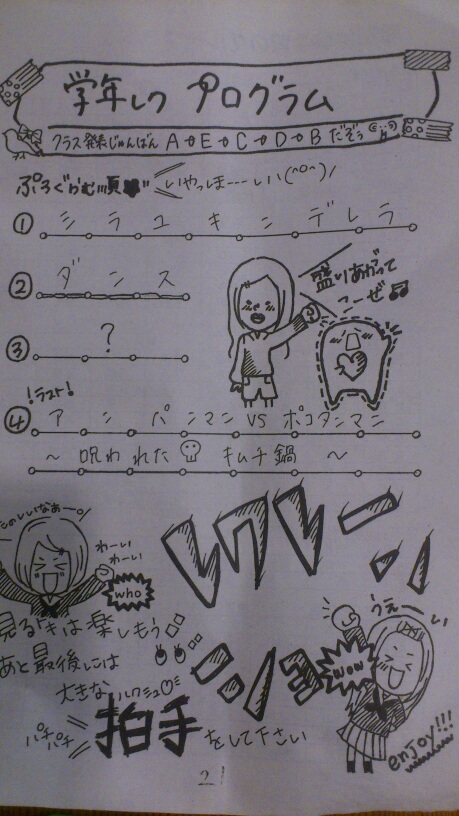 学年レク プログラム
クラス発表じゅんばん A→E→C→D→Bだぞぅ
ぷろぐらむ順 いやっほーーーしいい(^o^)/
① シラユキンデレラ
盛りあがって
こーぜ♫
② ダンス
③ ?
!ラスト!
④ アンパンマン VS ポコタンマン
～ 呪われた キムチ鍋 ～
たのしいなぁー
わーい
わーい
who
レクレーション
うぇ〜い
wow
見るときは楽しもう
あと最後には
大きな
パチパチ 拍手 をして下さい
enjoy!!!
2